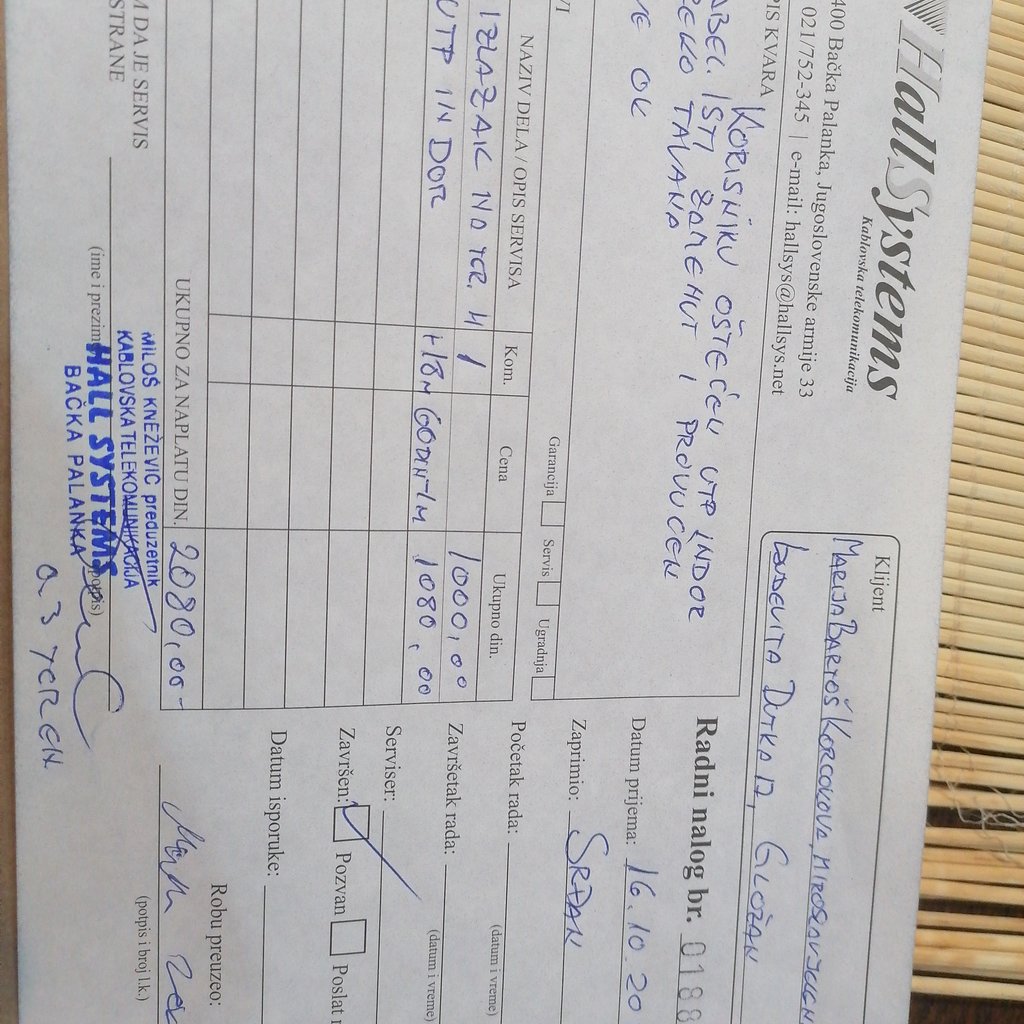 HallSystems
Kablovska telekomunikacija
400 Bačka Palanka, Jugoslovenske armije 33
021/752-345 | e-mail: hallsys@hallsys.net
Klijent
MARIJA BARTOŠ KORCOKOVA,
17, GLOŽAN
PIS KVARA
KORISNIKU OŠTEĆEN UTP INDOR
ABEL. ISTI ZAMENUT I PROVUČEN
REKO TAVANA
VE OK
Garancija Servis Ugradnja
VI
NAZIV DELA / OPIS SERVISA Kom. Cena Ukupno din.
IZLAZAK NA TER. 1 1000,00
UTP IN DOR 18M 60DIN-1M 1080,00
UKUPNO ZA NAPLATU DIN. 2080,00-
Radni nalog br. 0188
Datum prijema: 16.10.20
Zaprimio: SRĐAN
Početak rada:
(datum i vreme)
Završetak rada:
(datum i vreme)
Serviser:
Završen: Pozvan Poslat
Datum isporuke:
Robu preuzeo:
(potpis i broj l.k.)
M DAJE SERVIS
STRANE
(ime i prezim
potpis)
MILOŠ KNEŽEVIĆ preduzetnik
KABLOVSKA TELEKOMUNIKACIJA
HALL SYSTEMS
BAČKA PALANKA